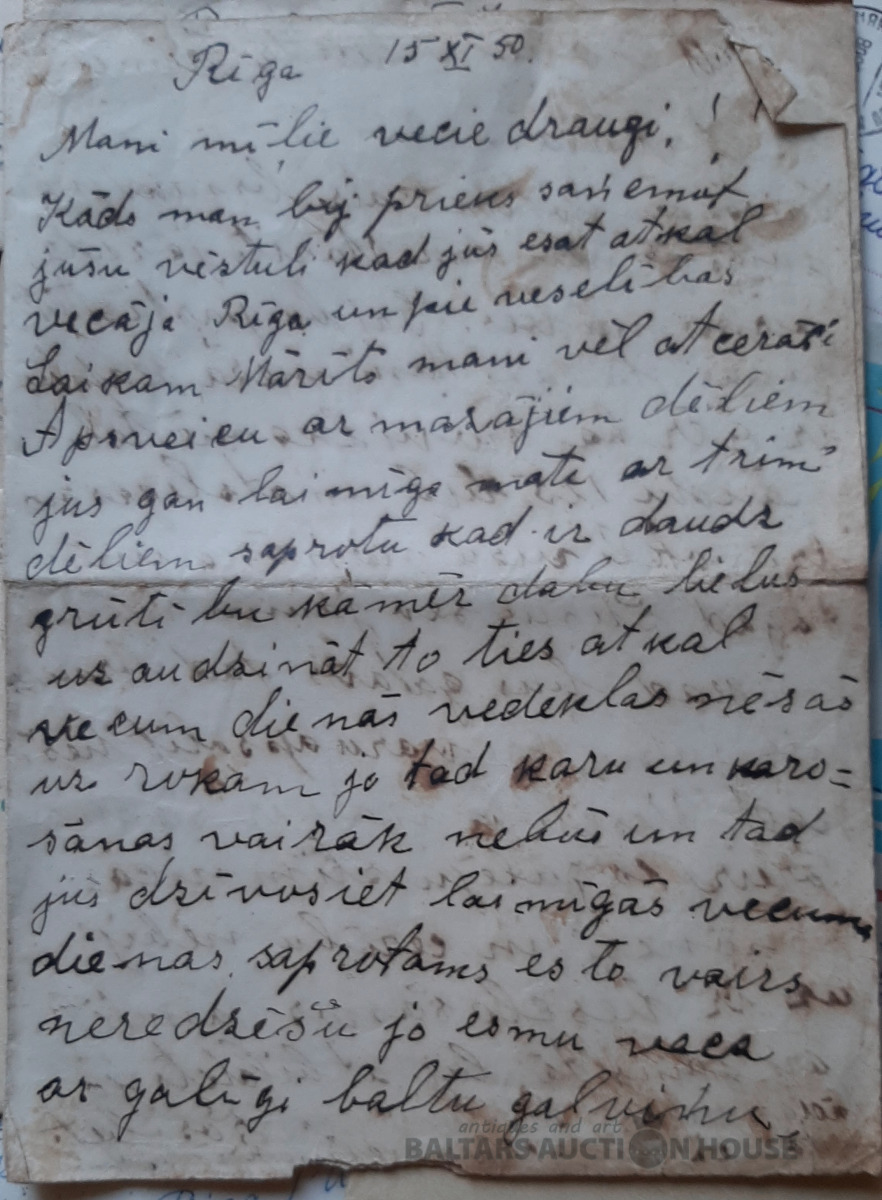 Rīga 15 XI 50.
Mani mīļie vecie draugi, !
Kāds man bij prieks saņemot
jūsu vēstuli kad jūs esat atkal
vecāja Rīga un pie veselības
Laikam Mārīts mani vēl atcerāsi
Apsveicu ar mazājiem dēliem
jus gan laimīga mate ar trim
dēliem saprotu kad ir daudz
grūtibu kamēr dabu lielus
uz audzināt to ties atkal
vecum dienās vedeklas nēsās
uz rokam jo tad karu un karo=
šanas vairāk nebūs un tad
jūs dzīvosiet laimīgās vecuma
dienas saprotams es to vairs
neredzēšu jo esmu veca
ar galīgi baltu galviņu
antiques and art
BALTARS AUCTION HOUSE